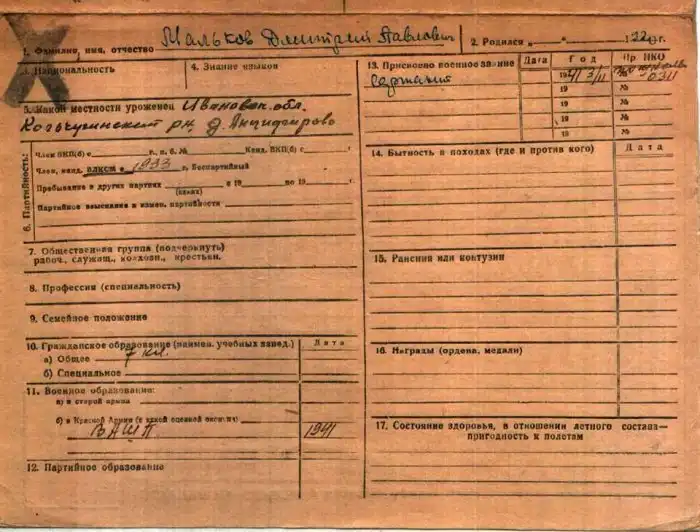 1. Фамилия, имя, отчество Мальков Дмитрий Павлович
2. Родился „ “ 1922 г.
3. Национальность
4. Знание языков
5. Какой местности уроженец Ивановск. обл.
Кольчугинский рн. д.
6. Партийность:
Член ВКП(б) с г., п. б. № Канд. ВКП(б) с г.
Член, канд. ВЛКСМ с 1933 г. Беспартийный
Пребывание в других партиях (каких) с 19 по 19 г.
Партийные взыскания и измен. партийности
7. Общественная группа (подчеркнуть)
рабоч., служащ., колхозн., крестьян.
8. Профессия (специальность)
9. Семейное положение
10. Гражданское образование (наимен. учебных завед.) Дата
а) Общее 7 кл.
б) Специальное
11. Военное образование:
а) в старой армии
б) в Красной Армии (с какой оценкой окончил)
ВАШП 1941
12. Партийное образование
13. Присвоено военное звание Дата Год Пр. НКО
Сержант 1941 3/II № 0311
19 №
19 №
19 №
19 №
14. Бытность в походах (где и против кого) Дата
15. Ранения или контузии
16. Награды (ордена, медали)
17. Состояние здоровья, в отношении летного состава—
пригодность к полетам